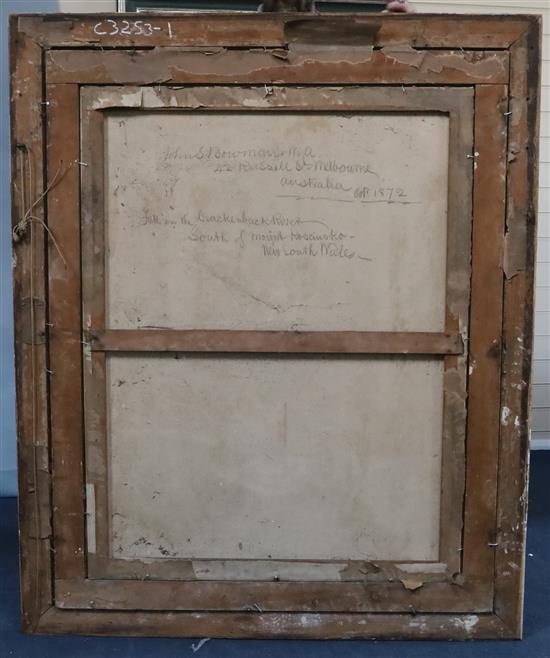 C3253-1
John S. Bowman M.A
42 Russell St Melbourne
Australia Oct 1872
Fall on the Crackenback River
South of Mount Kosciusko -
New South Wales